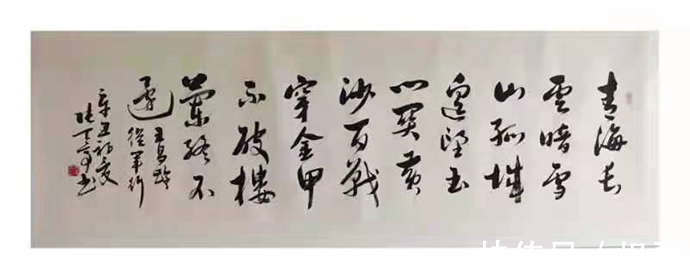 青海長
雲暗雪
山孤城
遙望玉
門關黃
沙百戰
穿金甲
不破樓
蘭終不
還
王昌齡
從軍行
辛丑初夏
書